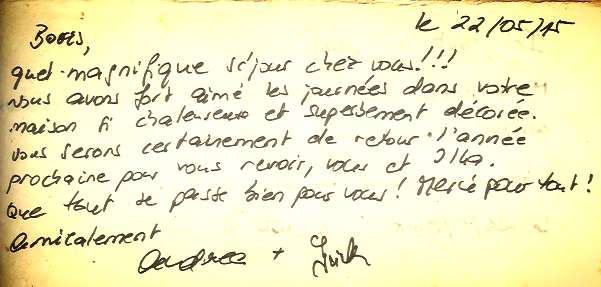 le 22/05/15
Boris,
quel magnifique séjour chez vous!!!
nous avons fort aimé les journées dans votre
maison si chaleureuse et superbement décorée.
nous serons certainement de retour l'année
prochaine pour vous revoir, vous et Ilka.
Que tout se passe bien pour vous! Merci pour tout!
Amicalement
Andrea +